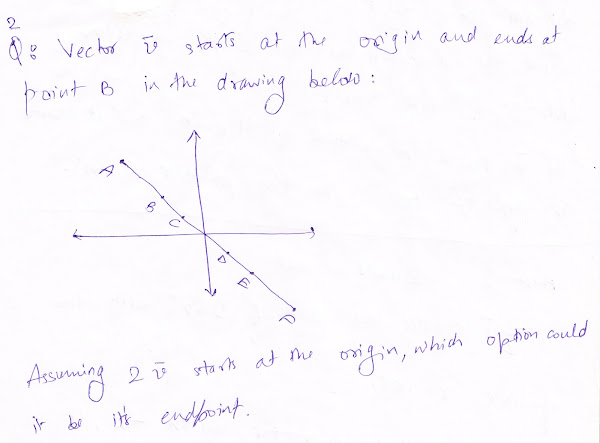 2
Q: Vector v̄ starts at the origin and ends at
point B in the drawing below:
A
B
C
D
E
D
Assuming 2 v̄ starts at the origin, which option could
it be it's endpoint.